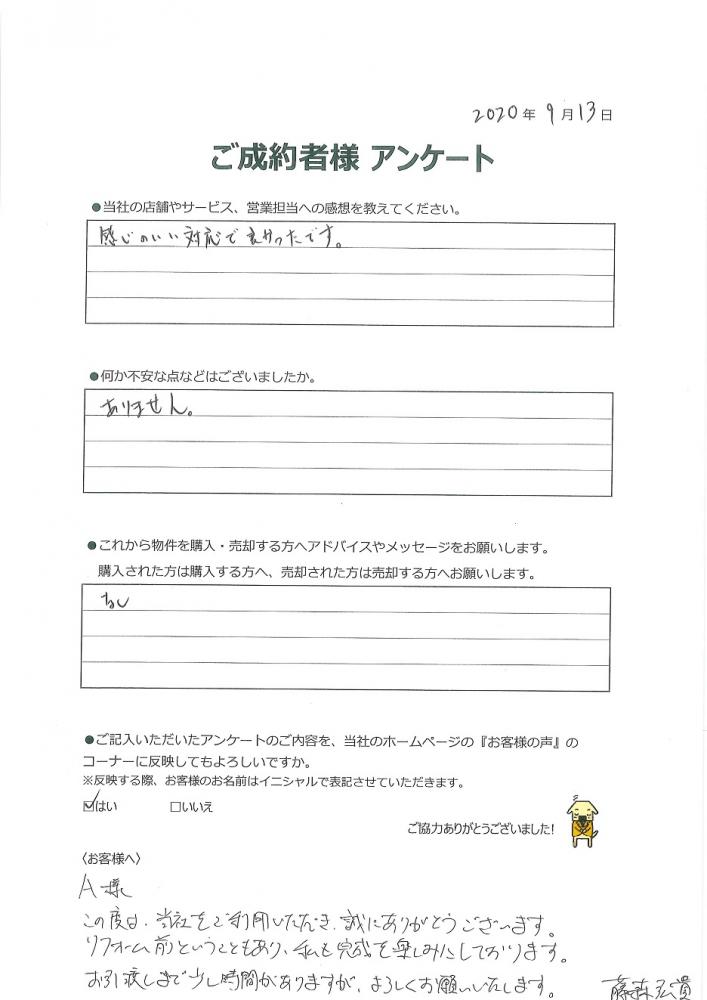 2020年 9月13日
ご成約者様 アンケート
●当社の店舗やサービス、営業担当への感想を教えてください。
感じのいい対応で良かったです。
●何か不安な点などはございましたか。
ありません。
●これから物件を購入・売却する方へアドバイスやメッセージをお願いします。
購入された方は購入する方へ、売却された方は売却する方へお願いします。
なし
●ご記入いただいたアンケートのご内容を、当社のホームページの『お客様の声』の
コーナーに反映してもよろしいですか。
※反映する際、お客様のお名前はイニシャルで表記させていただきます。
☑はい □いいえ
ご協力ありがとうございました!
〈お客様へ〉
A様
この度は、当社をご利用いただき、誠にありがとうございます。
リフォーム前ということもあり、私も完成を楽しみにしております。
お引渡しまで少し時間がありますが、よろしくお願いいたします。
藤森広貴